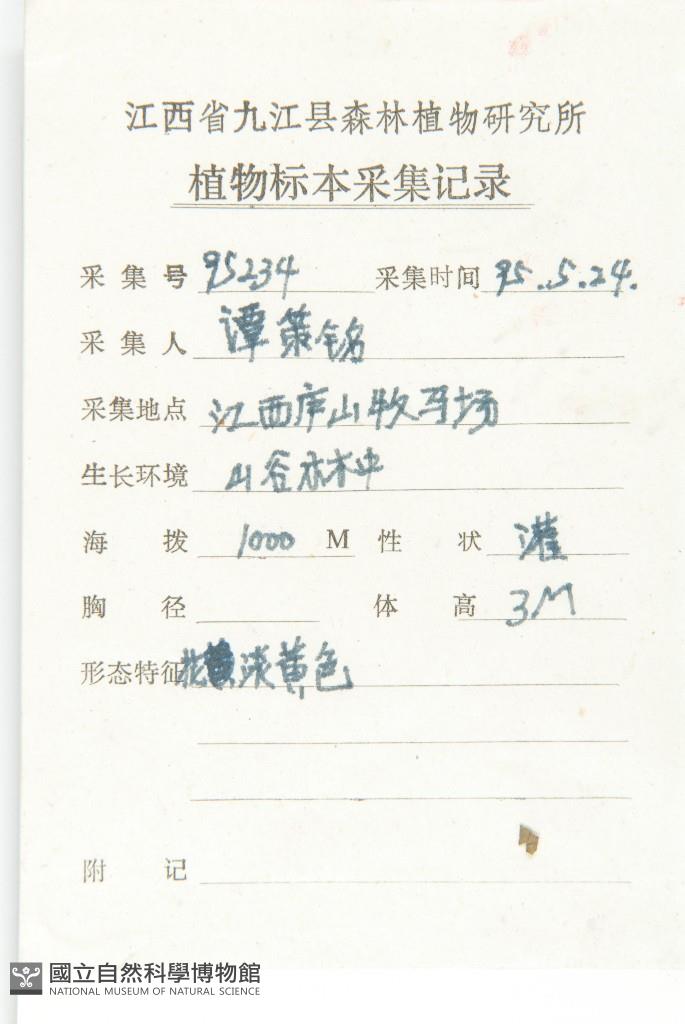 江西省九江县森林植物研究所
植物标本采集记录
采集号 95234 采集时间 95.5.24.
采集人 谭策铭
采集地点 江西庐山牧马场
生长环境 山谷林中
海拨 1000 M 性状 灌
胸径 体高 3M
形态特征 花淡黄色
附记
國立自然科學博物館
NATIONAL MUSEUM OF NATURAL SCIENCE